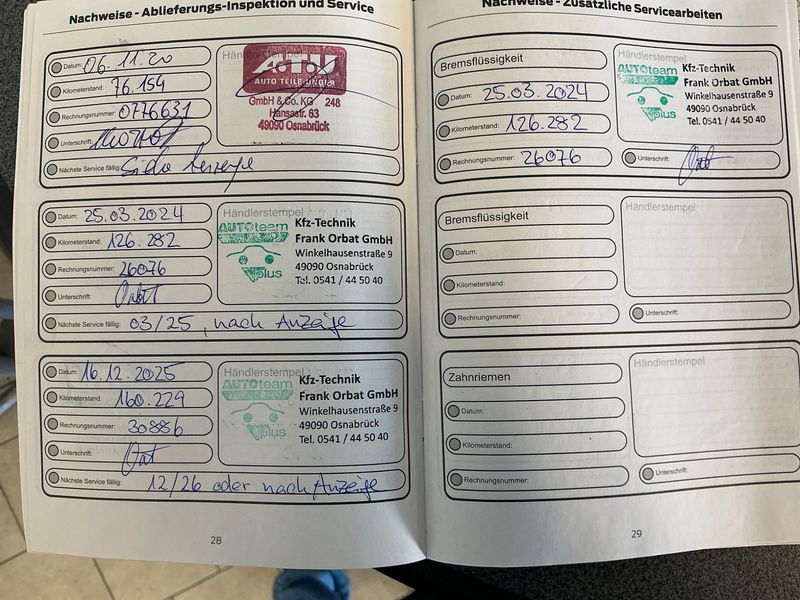 Nachweise - Ablieferungs-Inspektion und Service
Datum: 06.11.20
Kilometerstand: 76.154
Rechnungsnummer: 0776631
Unterschrift:
Nächste Service fällig: Siehe
Händlerstempel
A.T.U
AUTO TEILE UNGER
GmbH & Co. KG 248
Hansastr. 63
49090 Osnabrück
Datum: 25.03.2024
Kilometerstand: 126.282
Rechnungsnummer: 26076
Unterschrift: Orbat
Nächste Service fällig: 03/25, nach Anzeige
Händlerstempel
AUTOteam
plus
Kfz-Technik
Frank Orbat GmbH
Winkelhausenstraße 9
49090 Osnabrück
Tel. 0541 / 44 50 40
Datum: 16.12.2025
Kilometerstand: 160.229
Rechnungsnummer: 30886
Unterschrift:
Nächste Service fällig: 12/26 oder nach Anzeige
Händlerstempel
AUTOteam
plus
Kfz-Technik
Frank Orbat GmbH
Winkelhausenstraße 9
49090 Osnabrück
Tel. 0541 / 44 50 40
28
Nachweise - Zusätzliche Servicearbeiten
Bremsflüssigkeit
Datum: 25.03.2024
Kilometerstand: 126.282
Rechnungsnummer: 26076
Händlerstempel
AUTOteam
plus
Kfz-Technik
Frank Orbat GmbH
Winkelhausenstraße 9
49090 Osnabrück
Tel. 0541 / 44 50 40
Unterschrift:
Bremsflüssigkeit
Datum:
Kilometerstand:
Rechnungsnummer:
Händlerstempel
Unterschrift:
Zahnriemen
Datum:
Kilometerstand:
Rechnungsnummer:
Händlerstempel
Unterschrift:
29